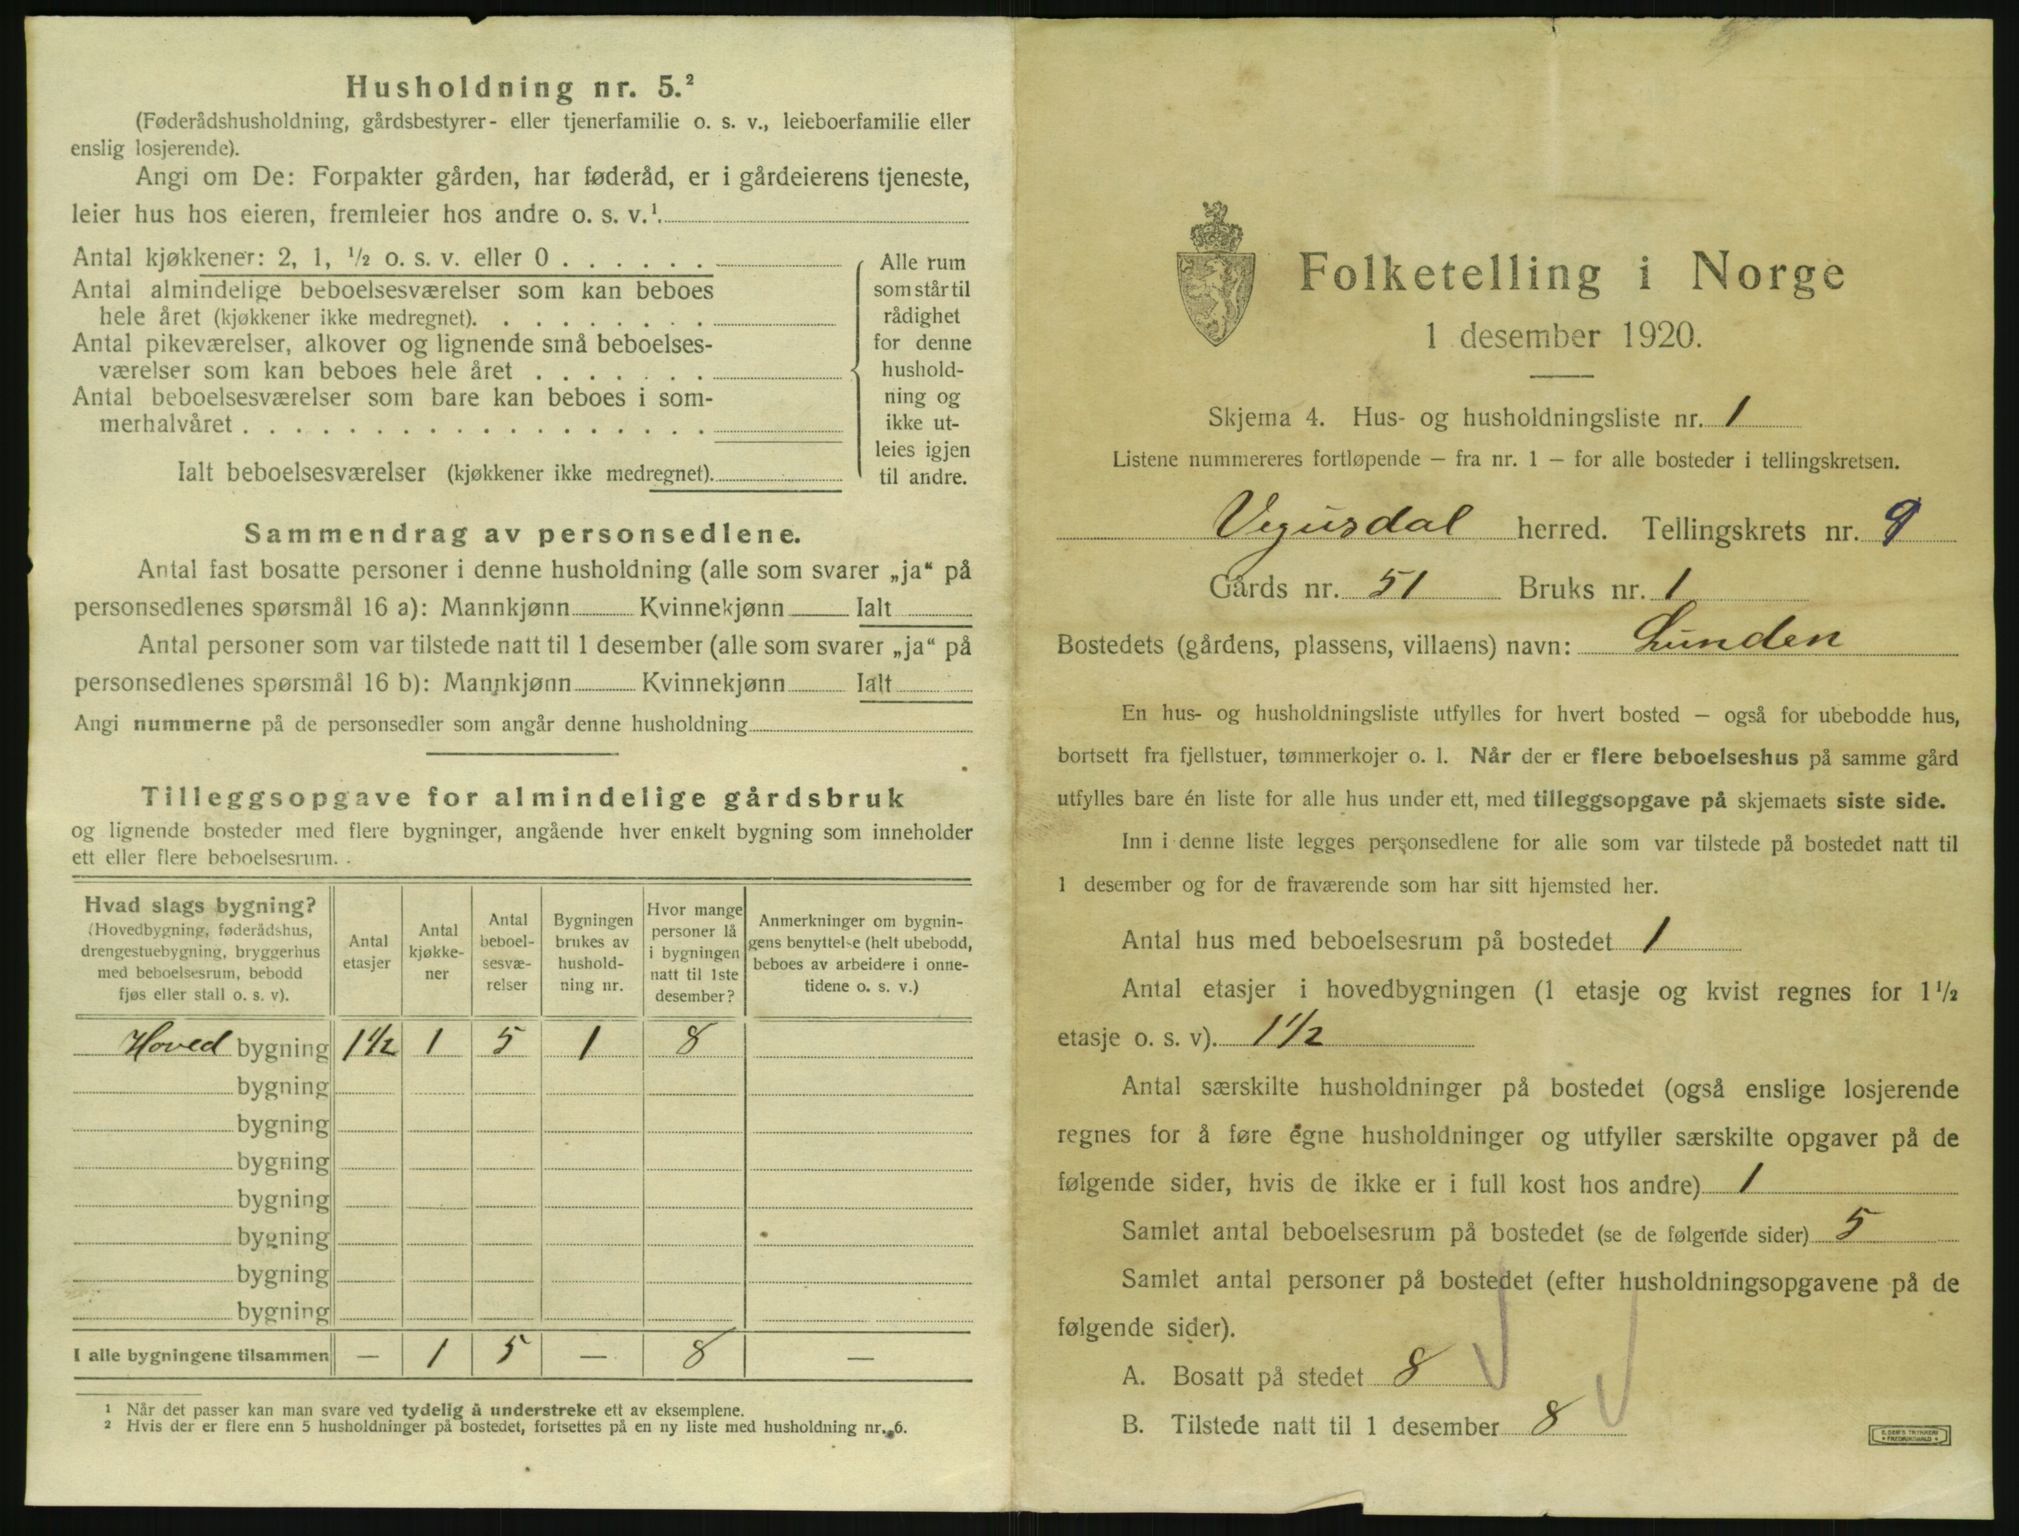 Husholdning nr. 5.²
(Føderådshusholdning, gårdsbestyrer- eller tjenerfamilie o. s. v., leieboerfamilie eller
enslig losjerende).
Angi om De: Forpakter gården, har føderåd, er i gårdeierens tjeneste,
leier hus hos eieren, fremleier hos andre o. s. v.¹.
Antal kjøkkener: 2, 1, ¹/₂ o. s. v. eller 0 . . . . . .
Antal almindelige beboelsesværelser som kan beboes
hele året (kjøkkener ikke medregnet). . . . . . . . .
Antal pikeværelser, alkover og lignende små beboelses-
værelser som kan beboes hele året . . . . . . .
Antal beboelsesværelser som bare kan beboes i som-
merhalvåret . . . . . . . . . . . . . . . . . .
Ialt beboelsesværelser (kjøkkener ikke medregnet).
Alle rum
som står til
rådighet
for denne
hushold-
ning og
ikke ut-
leies igjen
til andre.
Sammendrag av personsedlene.
Antal fast bosatte personer i denne husholdning (alle som svarer „ja“ på
personsedlenes spørsmål 16 a): Mannkjønn Kvinnekjønn Ialt
Antal personer som var tilstede natt til 1 desember (alle som svarer „ja“ på
personsedlenes spørsmål 16 b): Mannkjønn Kvinnekjønn Ialt
Angi nummerne på de personsedler som angår denne husholdning
Tilleggsopgave for almindelige gårdsbruk
og lignende bosteder med flere bygninger, angående hver enkelt bygning som inneholder
ett eller flere beboelsesrum.
Hvad slags bygning?
(Hovedbygning, føderådshus,
drengestuebygning, bryggerhus
med beboelsesrum, bebodd
fjøs eller stall o. s. v).
Antal
etasjer
Antal
kjøkke-
ner
Antal
beboel-
sesvæ-
relser
Bygningen
brukes av
hushold-
ning nr.
Hvor mange
personer lå
i bygningen
natt til 1ste
desember?
Anmerkninger om bygnin-
gens benyttelse (helt ubebodd,
beboes av arbeidere i onne-
tidene o. s. v.)
Hoved bygning 1½ 1 5 1 8
bygning
bygning
bygning
bygning
bygning
bygning
bygning
I alle bygningene tilsammen — 1 5 — 8 —
1 Når det passer kan man svare ved tydelig å understreke ett av eksemplene.
2 Hvis der er flere enn 5 husholdninger på bostedet, fortsettes på en ny liste med husholdning nr. 6.
Folketelling i Norge
1 desember 1920.
Skjema 4. Hus- og husholdningsliste nr. 1
Listene nummereres fortløpende — fra nr. 1 — for alle bosteder i tellingskretsen.
Vegusdal herred. Tellingskrets nr. 9
Gårds nr. 51 Bruks nr. 1
Bostedets (gårdens, plassens, villaens) navn: Lunden
En hus- og husholdningsliste utfylles for hvert bosted — også for ubebodde hus,
bortsett fra fjellstuer, tømmerkojer o. l. Når der er flere beboelseshus på samme gård
utfylles bare én liste for alle hus under ett, med tilleggsopgave på skjemaets siste side.
Inn i denne liste legges personsedlene for alle som var tilstede på bostedet natt til
1 desember og for de fraværende som har sitt hjemsted her.
Antal hus med beboelsesrum på bostedet 1
Antal etasjer i hovedbygningen (1 etasje og kvist regnes for 1¹/₂
etasje o. s. v). 1½
Antal særskilte husholdninger på bostedet (også enslige losjerende
regnes for å føre egne husholdninger og utfyller særskilte opgaver på de
følgende sider, hvis de ikke er i full kost hos andre) 1
Samlet antal beboelsesrum på bostedet (se de følgende sider) 5
Samlet antal personer på bostedet (efter husholdningsopgavene på de
følgende sider).
A. Bosatt på stedet 8
B. Tilstede natt til 1 desember 8